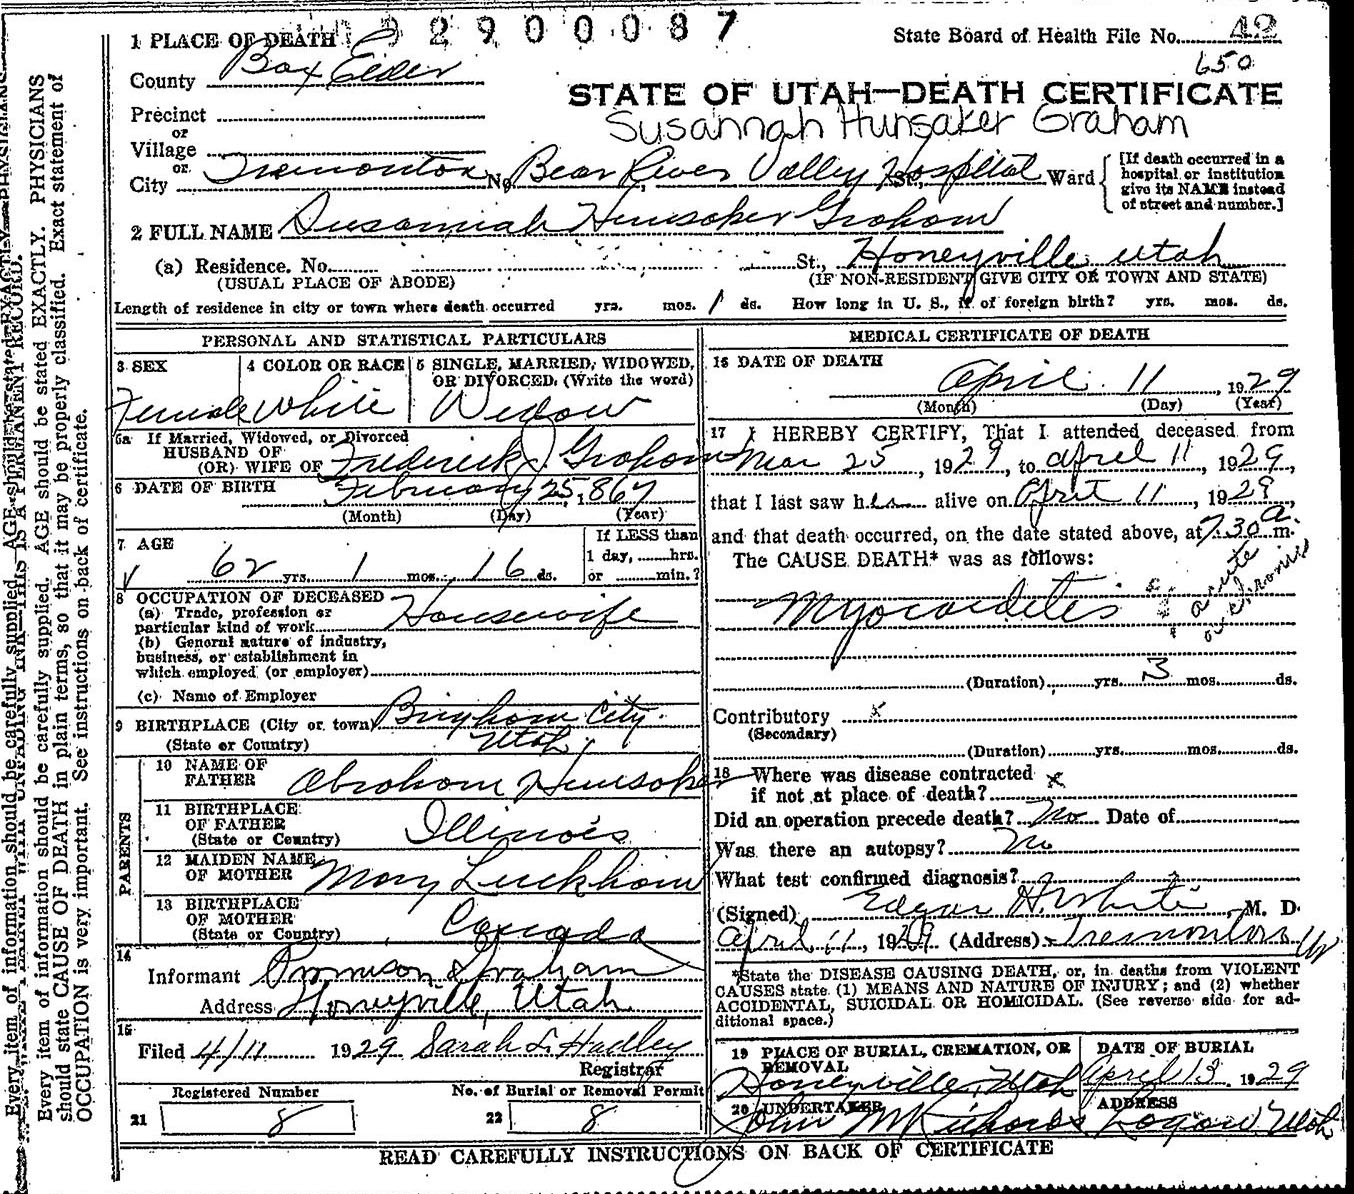 1 PLACE OF DEATH 1929 0 0 0 8 7
State Board of Health File No. 42
650
County Box Elder
STATE OF UTAH—DEATH CERTIFICATE
Susannah Hunsaker Graham
Precinct
or
Village
or
City Tremonton No. Bear River Valley Hospital St., Ward
[If death occurred in a hospital or institution give its NAME instead of street and number.]
2 FULL NAME Susannah Hunsaker Graham
(a) Residence. No. St., Honeyville Utah
(USUAL PLACE OF ABODE) (IF NON-RESIDENT GIVE CITY OR TOWN AND STATE)
Length of residence in city or town where death occurred yrs. mos. 1 ds. How long in U. S., if of foreign birth? yrs. mos. ds.
PERSONAL AND STATISTICAL PARTICULARS
3 SEX
Female
4 COLOR OR RACE
White
5 SINGLE, MARRIED, WIDOWED, OR DIVORCED. (Write the word)
Widow
5a If Married, Widowed, or Divorced
HUSBAND OF
(OR) WIFE OF Frederick J Graham
6 DATE OF BIRTH February 25, 1867
(Month) (Day) (Year)
7 AGE
62 yrs. 1 mos. 16 ds.
If LESS than
1 day, hrs.
or min.?
8 OCCUPATION OF DECEASED
(a) Trade, profession or
particular kind of work Housewife
(b) General nature of industry,
business, or establishment in
which employed (or employer)
(c) Name of Employer
9 BIRTHPLACE (City or town) Brigham City
(State or Country) Utah
PARENTS
10 NAME OF
FATHER Abraham Hunsaker
11 BIRTHPLACE
OF FATHER
(State or Country) Illinois
12 MAIDEN NAME
OF MOTHER Mary Luckham
13 BIRTHPLACE
OF MOTHER
(State or Country) Canada
14
Informant Graham
Address Honeyville, Utah
15
Filed 4/11 1929 Sarah L. Hadley
Registrar
Registered Number No. of Burial or Removal Permit
21 8 22 8
MEDICAL CERTIFICATE OF DEATH
16 DATE OF DEATH
April 11, 1929
(Month) (Day) (Year)
17 I HEREBY CERTIFY, That I attended deceased from
Mar 25, 1929, to April 11, 1929,
that I last saw her alive on April 11, 1929,
and that death occurred, on the date stated above, at 7.30 a. m.
The CAUSE DEATH* was as follows:
Myocarditis
acute
or chronic
(Duration) yrs. 3 mos. ds.
Contributory x
(Secondary)
(Duration) yrs. mos. ds.
18 Where was disease contracted
if not at place of death? x
Did an operation precede death? No Date of
Was there an autopsy? No
What test confirmed diagnosis?
(Signed) Edgar H. White, M. D.
April 11, 1929 (Address) Tremonton Ut
*State the DISEASE CAUSING DEATH, or, in deaths from VIOLENT
CAUSES state (1) MEANS AND NATURE OF INJURY; and (2) whether
ACCIDENTAL, SUICIDAL OR HOMICIDAL. (See reverse side for ad-
ditional space.)
19 PLACE OF BURIAL, CREMATION, OR
REMOVAL
Honeyville, Utah
DATE OF BURIAL
April 13 1929
20 UNDERTAKER
John M
ADDRESS
Logan Utah
READ CAREFULLY INSTRUCTIONS ON BACK OF CERTIFICATE
Every item of information should be carefully supplied. AGE should be stated EXACTLY. PHYSICIANS
should state CAUSE OF DEATH in plain terms, so that it may be properly classified. Exact statement of
OCCUPATION is very important. See instructions on back of certificate.